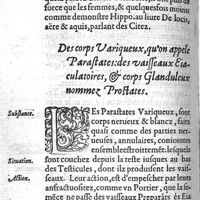 force que les femmes, & quelquesfois moins
comme demonstre Hippo. au liure De locis,
aëre & aquis, parlant des Citez.
Des corps Variqueux, qu'on appelle
Parastates: des vaisseaux Eia-
culatoires, & corps Glanduleux
nommez Prostates.
Substance.
LEs Parastates Variqueux, sont
corps nerueux & blancz, faitz
quasi comme des parties ner-
ueuses, annulaires, conioints
ensemble estroittement: lesquels
Situation.
sont couchez depuis la teste iusques au bas
des Testicules, dont ilz produisent les vais-
Action.
seaux. Leur action, est d'empescher par leurs
anfractuositez, comme vn Portier, que la se-
mence ne passe des vaisseaux Preparãts és Eia-